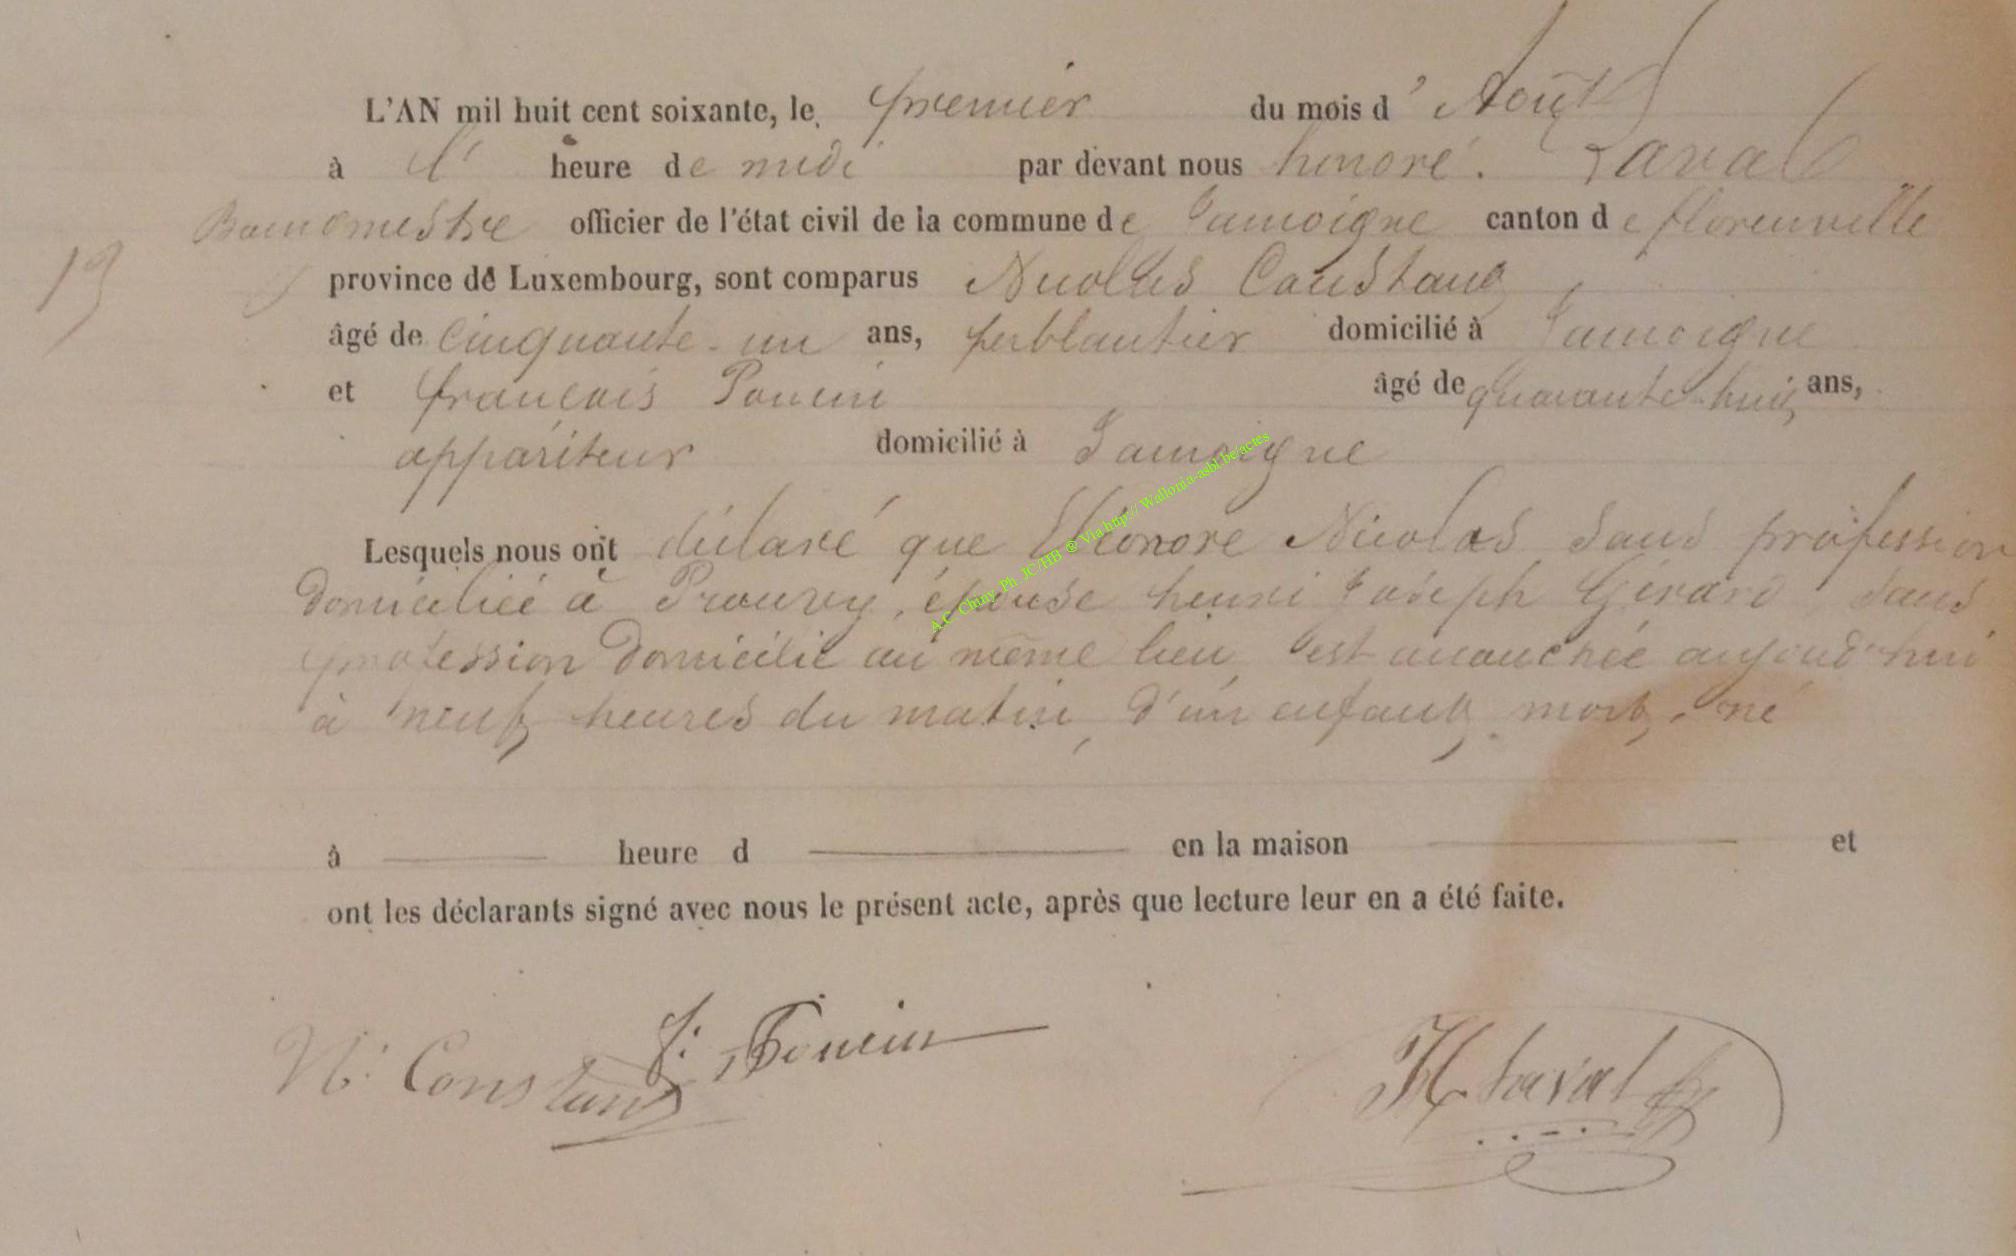 L'AN mil huit cent soixante, le premier du mois d' Août
à l' heure de midi par devant nous honoré Laval
Bourgmestre officier de l'état civil de la commune de Jamoigne canton de florenville
19
province de Luxembourg, sont comparus Nicolas Constant
âgé de Cinquante-un ans, ferblantier domicilié à Jamoigne
et françois Poncin âgé de quarante-huit ans,
appariteur domicilié à Jamoigne
Lesquels nous ont déclaré que Eléonore Nicolas sans profession
domiciliée à Prouvy, épouse henri Joseph Gérard, sans
profession domicilié au même lieu, est accouchée aujourd'hui
à neuf heures du matin, d'un enfant mort-né
à heure d en la maison et
ont les déclarants signé avec nous le présent acte, après que lecture leur en a été faite.
N. Constant f. Poncin H Laval
A.C. Chiny Ph JC/HB @ Via http:// Wallonia-asbl.be/actes